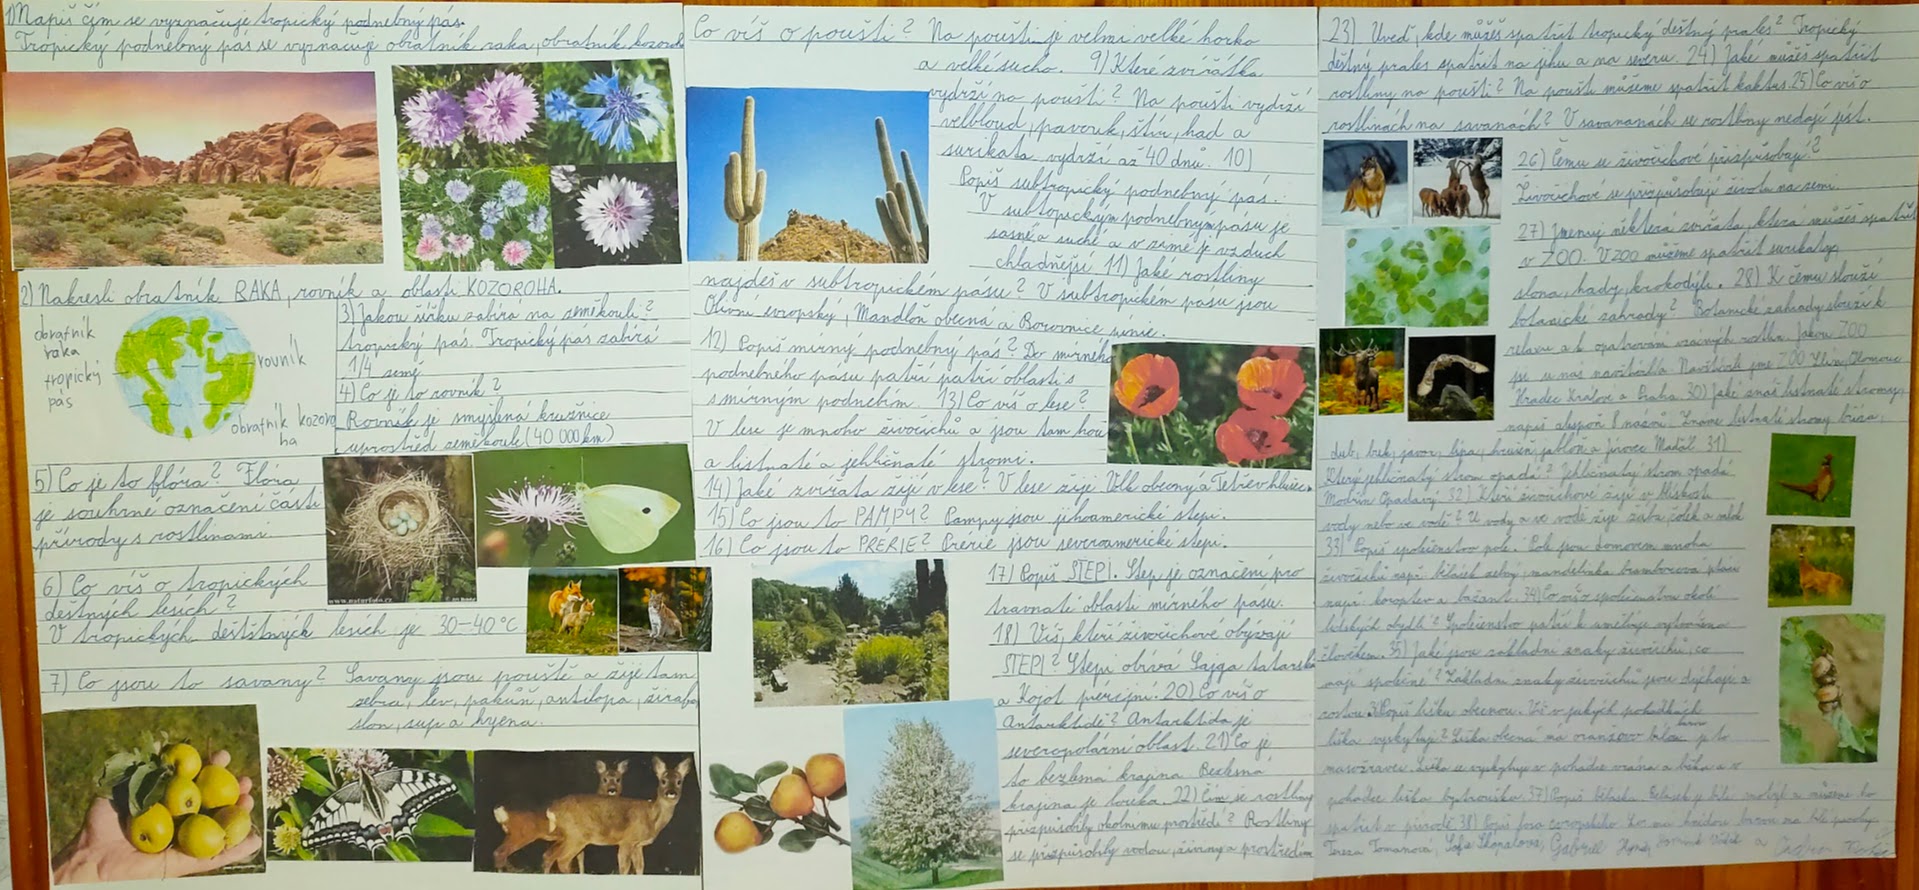 1) Napiš čím se vyznačuje tropický podnebný pás.
Tropický podnebný pás se vyznačuje obratník raka, obratník kozoroh
2) Nakresli obratník RAKA, rovník a oblasti KOZOROHA.
obratník
raka
tropický
pás
rovník
obratník kozoro
ha
3) Jakou šířku zabírá na zeměkouli?
tropický pás. Tropický pás zabírá
1/4 země
4) Co je to rovník?
Rovník je smyšlená kružnice
uprostřed zeměkoule (40 000 km)
5) Co je to flóra? Flóra
je souhrné označení části
přírody s rostlinami.
www.naturfoto.cz
6) Co víš o tropických
deštných lesích?
V tropických deštných lesích je 30-40°C
7) Co jsou to savany? Savany jsou pouště a žije tam
zebra, lev, pakůň, antilopa, žirafa
slon, sup a hyena.
Co víš o poušti? Na poušti je velmi velké horko
a velké sucho. 9) Které zvířátka
vydrží na poušti? Na poušti vydrží
velbloud, pavouk, štír, had a
surikata vydrží až 40 dnů. 10)
Popiš subtropický podnebný pás.
V subtopickým podnebným pásu je
jasné a suché a v zimě je vzduch
chladnější. 11) Jaké rostliny
najdeš v subtropickém pásu? V subtropickém pásu jsou
Olivní evropský, Mandloň obecná a Borovnice pinie.
12) Popiš mírný podnebný pás? Do mírného
podnebného pásu patří patří oblasti s
s mírným podnebem. 13) Co víš o lese?
V lese je mnoho živočichů a jsou tam hou
a listnaté a jehličnaté stromi.
14) Jaké zvířata žijí v lese? V lese žije Vlk obecný a Tetřev hlušec.
15) Co jsou to PAMPY? Pampy jsou jihoamerické stepi.
16) Co jsou to PRÉRIE? Prérie jsou severoamerické stepi.
17) Popiš STEPI. Step je označení pro
travnaté oblasti mírného pásu.
18) Víš, kteří živočichové obývají
STEPI? Stepi obívá Sajga tatarská
a Kojot prérijní. 20) Co víš o
Antarktidě? Antarktida je
severopolární oblast. 21) Co je
to bezlesná krajina Bezlesná
krajina je louka. 22) Čím se rostliny
přizpůsobily okolnímu prostředí? Rostliny
se přizpůsobily vodou, živiny a prostředím
23) Uveď, kde můžeš spatřit tropický deštný prales? Tropický
deštný prales spatřit na jihu a na severu. 24) Jaké můžeš spatřit
rostliny na poušti? Na poušti můžeme spatřit kaktus. 25) Co víš o
rostlinách na savanách? V savananách se rostliny nedají jíst.
26) Čemu se živočichové přizpůsobují?
Živočichové se přizpůsobují životu na zemi.
27) Jmenuj některá zvířata, která můžeš spatřit
v ZOO. V ZOO můžeme spatřit surikaty,
slona, hady, krokodýle. 28) K čemu slouží
botanické zahrady? Botanické zahrady slouží k
relaxu a k opatrování vzácných rostlin. Jakou ZOO
jsi u nás navštívil? Navštívili jsme ZOO Zlín, Olomouc
Hradec Králove a Praha. 30) Jaké znáš listnaté stromy,
napiš alespoň 8 názvů. Známe listnaté stromy bříza,
dub, buk, javor, lípa, hrušeň, jabloň a jírovec Maďal. 31)
Který jehličnatý strom opadá? Jehličnatý strom opadá
Modřín Opadavý. 32) Kteří živočichové žijí v blízkosti
vody nebo ve vodě? U vody a ve vodě žije žába čolek a mlok
33) Popiš společenstvo pole. Pole jsou domovem mnoha
živočichů např. bělásek zelný, mandelinka bramborová ptáci
např. koroptev a bažant. 34) Co víš o společenstvu okolí
lidských obydlí? Společenstvo patří k uměluje vytvořena
člověkem. 35) Jaké jsou základní znaky živočichů, co
mají společné? Základní znaky živočichů jsou dýchají a
rostou. 36) Popiš lišku obecnou. Víš v jakých pohádkách
liška vyskytuje? Liška obecná má oranžovo bílou barvu je to
masožravec. Liška se vyskytuje v pohádce vrána a liška a v
pohádce liška bystrouška 37) Popiš běláska. Bělásek je bílý motýl a můžeme ho
spatřit v přírodě 38) Popiš
Tereza Tomanová, Sofie Skopalová, Gabriel